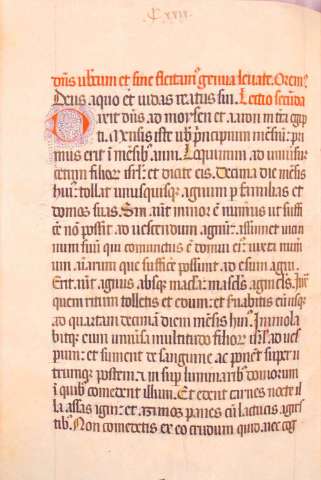 C xxix
Dn̄s vobcum et sine flectam̄ genua leuate. Orem̄
Deus a quo et iudas reatus sui. Lectio secūda
Dixit dn̄s ad moysen et aaron in terra egip
ti. Mensis iste vob̄ principium mensiū: pri
mus erit ī mēsib; anni. Loquimini ad vniuersū
cetum filior̄ isrl̄: et dicite eis. Decima die mēsis
hui9 tollat unusquisq; agnum p familias et
domos suas. Sin aūt minor ē numerus ut suffi
cere nō possit ad vescendum agnū: assumet vicin
num suū qui coniunctus ē domui ei9: iuxta num̄
um aīarum que sufficere possunt ad esum agni.
Erit aūt agnus absq; macl̄a: mascl̄s agnicl̄s. Iux̄
quem ritum tolletis et edum: et ſuabitis eū usq;
ad quartam decimā diem mēsis hui9. Immola
bitq; eum vniuersa multitudo filior̄ isrl̄ ad ves
pum: et sument de sanguine ac ponēt super u
trumque postem: et in sup luminarib; domorum
ī quib; comedent illum. Et edent carnes nocte il
la assas igni: et azimos panes cū lactucis agres
tib;. Non comedetis ex eo crudum quid nec coc